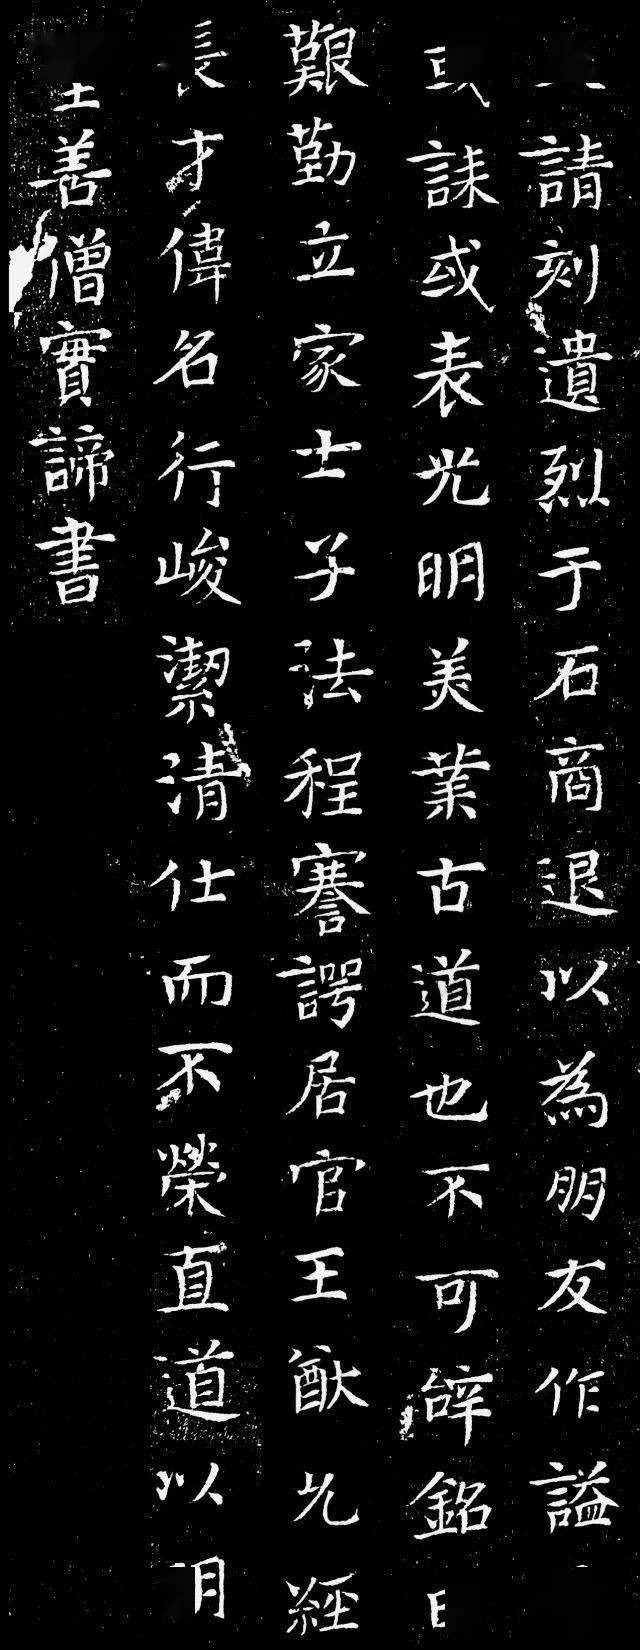 請刻遺烈于石商退以為朋友作謚
或誄或表光明美業古道也不可辭銘曰
艱勤立家士子法程謇諤居官王猷允經
長才偉名行峻潔清仕而不榮直道以明
善僧實諦書